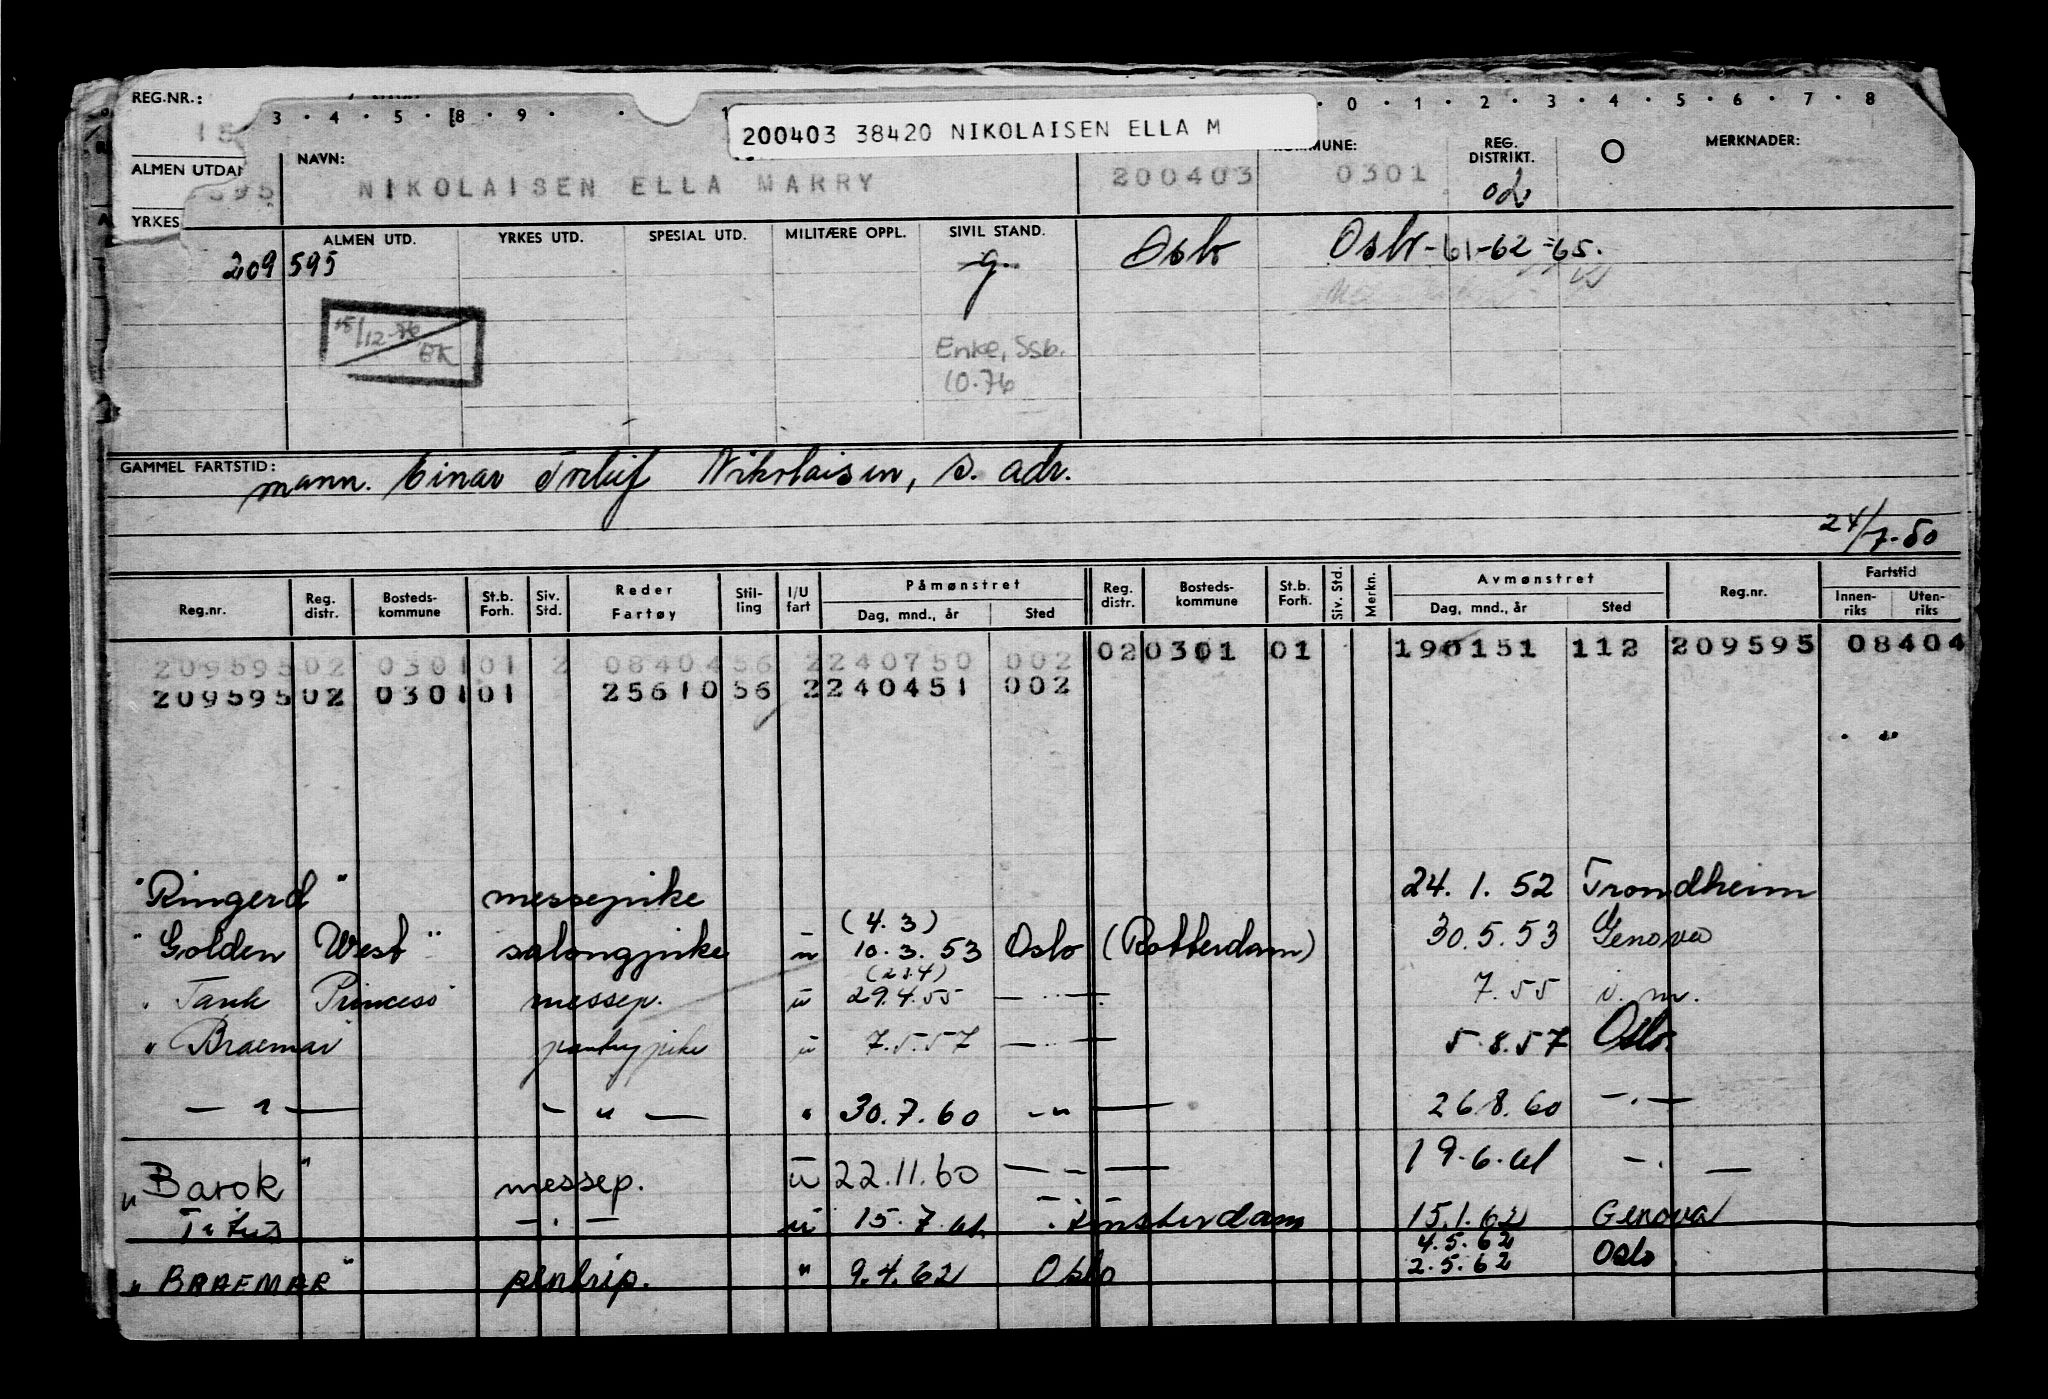 REG.NR.:
3 · 4 · 5 · 8 · 9 · · 1 · 0 · 1 · 2 · 3 · 4 · 5 · 6 · 7 · 8
200403 38420 NIKOLAISEN ELLA M
15
ALMEN UTDAN
NAVN: KOMMUNE: REG. DISTRIKT. O MERKNADER:
595 NIKOLAISEN ELLA MARRY 200403 0301 02
YRKES
ALMEN UTD. YRKES UTD. SPESIAL UTD. MILITÆRE OPPL. SIVIL STAND.
209 595 g. Oslo Oslo-61-62-65.
15/12-76 EK
Enke, Ssb.
10.76
GAMMEL FARTSTID: mann. Einar Torleif Nikolaisen, s. adr.
24/7-50
Reg.nr. Reg. distr. Bosteds-kommune St.b. Forh. Siv. Std. Reder Fartøy Stil-ling I/U fart Påmønstret Dag, mnd., år Sted Reg. distr. Bosteds-kommune St.b. Forh. Siv. Std. Merkn. Avmønstret Dag, mnd., år Sted Reg.nr. Fartstid Innen-riks Uten-riks
209595 02 0301 01 2 08404 56 2 240750 002 02 0301 01 190151 112 209595 08404
209595 02 0301 01 25610 56 2 240451 002
"Ringerd" messepike 24. 1. 52 Trondheim
(4. 3)
"Golden West" salongpike u 10. 3. 53 Oslo (Rotterdam) 30. 5. 53 Genova
(23.4)
"Tank Princess" messep. u 29.4.55 — " — 7. 55 i. m.
"Braemar pantrypike u 7.5.57 — " — 5.8.57 Oslo.
— " — — " — " 30.7.60 — " — 26.8.60 — " —
"Barok" messep. u 22.11.60 — " — 19.6.61 — " —
Titus — " — u 15.7.61 Amsterdam 15.1.62 Genova
4.5.62
"BRAEMAR" pentrip. " 9.4.62 Oslo 2.5.62 Oslo